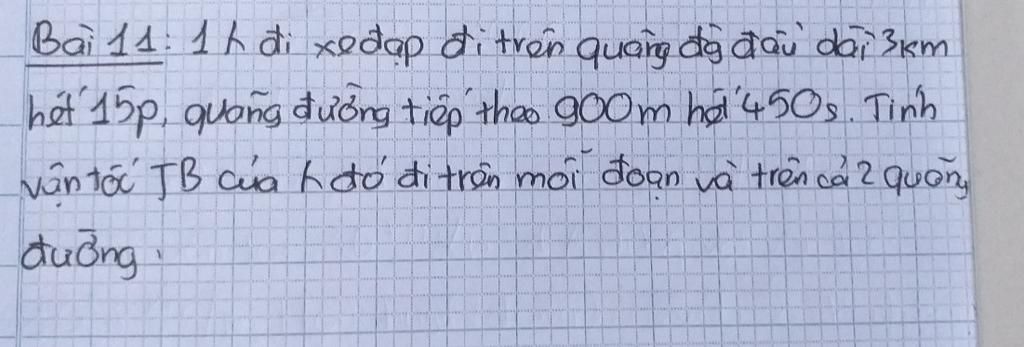 Bài 11: 1 h đi xe đạp đi trên quãng đg đầu dài 3km
hết 15p, quãng đường tiếp theo 900m hết 450s. Tính
vận tốc TB của h đó đi trên mỗi đoạn và trên cả 2 quãng
đường.